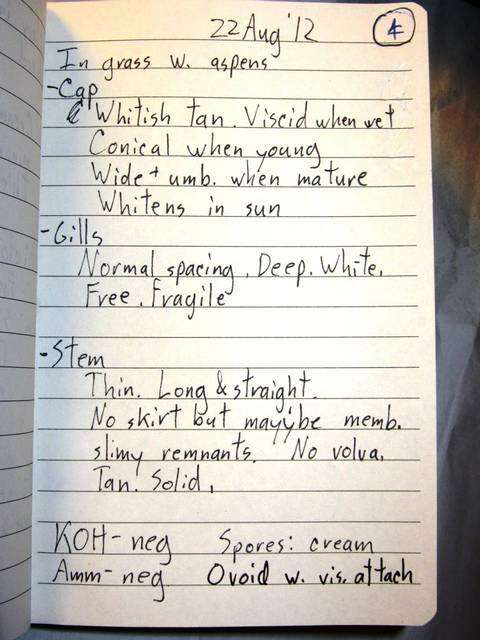 22 Aug '12 4
In grass w. aspens
-Cap
Whitish tan. Viscid when wet
Conical when young
Wide + umb. when mature
Whitens in sun
-Gills
Normal spacing. Deep. White.
Free. Fragile
-Stem
Thin. Long & straight.
No skirt but mayybe memb.
slimy remnants. No volva.
Tan. Solid.
KOH- neg Spores: cream
Amm- neg Ovoid w. vis. attach